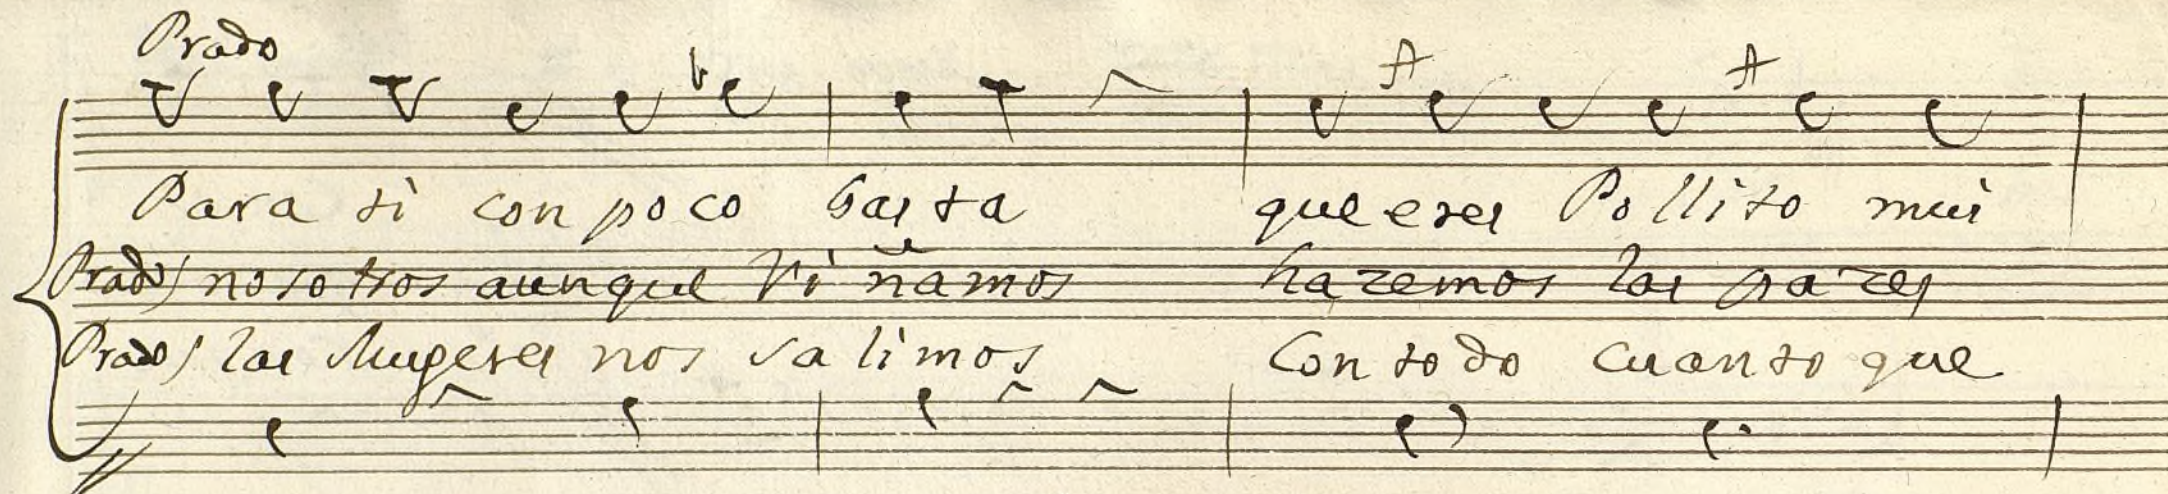 Prado
Para ti con poco basta que eres Pollito mui
Prado) nosotros aunque riñamos hazemos las pazes
Prado) las Mugeres nos salimos Con todo cuanto que